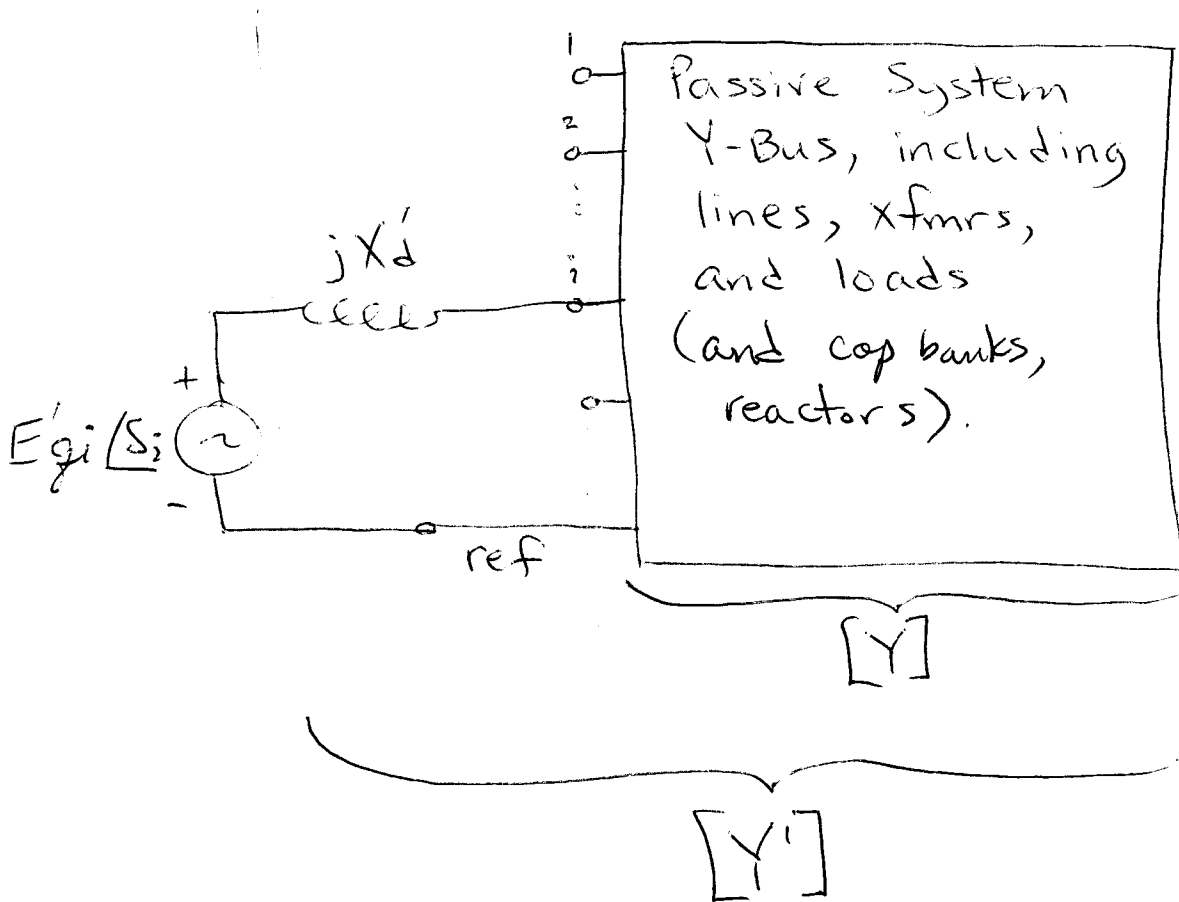 1
Passive System
2
Y-Bus, including
lines, xfmrs,
jX'd
i
and loads
(and cap banks,
reactors).
+
E'gi∠δi
~
-
ref
[Y]
[Y']